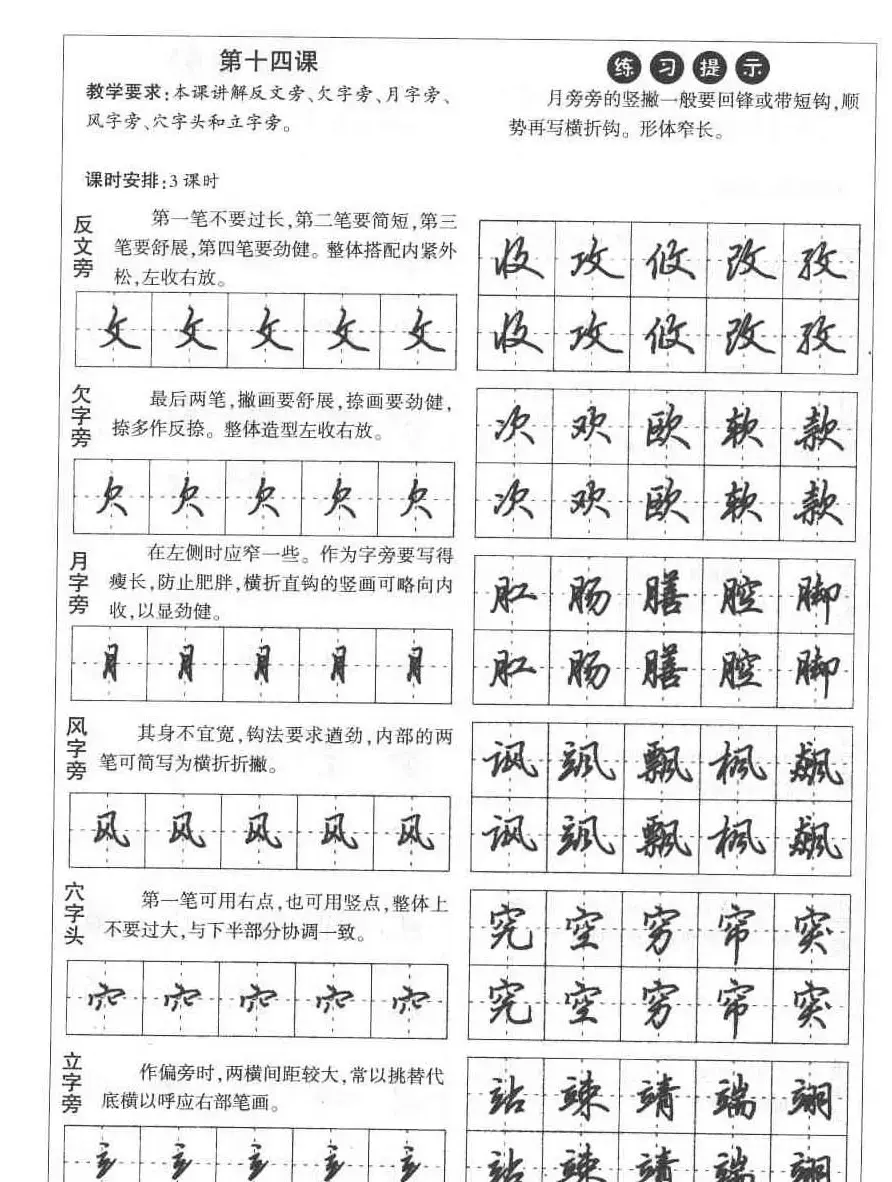 第十四课
教学要求:本课讲解反文旁、欠字旁、月字旁、
风字旁、穴字头和立字旁。
课时安排:3课时
练习提示
月旁旁的竖撇一般要回锋或带短钩,顺
势再写横折钩。形体窄长。
反文旁
第一笔不要过长,第二笔要简短,第三
笔要舒展,第四笔要劲健。整体搭配内紧外
松,左收右放。
攵 攵 攵 攵 攵
收 攻 攸 改 孜
收 攻 攸 改 孜
欠字旁
最后两笔,撇画要舒展,捺画要劲健,
捺多作反捺。整体造型左收右放。
欠 欠 欠 欠 欠
次 欢 欧 软 款
次 欢 欧 软 款
月字旁
在左侧时应窄一些。作为字旁要写得
瘦长,防止肥胖,横折直钩的竖画可略向内
收,以显劲健。
月 月 月 月 月
肛 肠 膳 腔 脚
肛 肠 膳 腔 脚
风字旁
其身不宜宽,钩法要求遒劲,内部的两
笔可简写为横折折撇。
风 风 风 风 风
讽 飒 飘 枫 飙
讽 飒 飘 枫 飙
穴字头
第一笔可用右点,也可用竖点,整体上
不要过大,与下半部分协调一致。
穴 穴 穴 穴 穴
究 空 穷 帘 突
究 空 穷 帘 突
立字旁
作偏旁时,两横间距较大,常以挑替代
底横以呼应右部笔画。
立 立 立 立 立
站 竦 靖 端 翊
站 竦 靖 端 翊